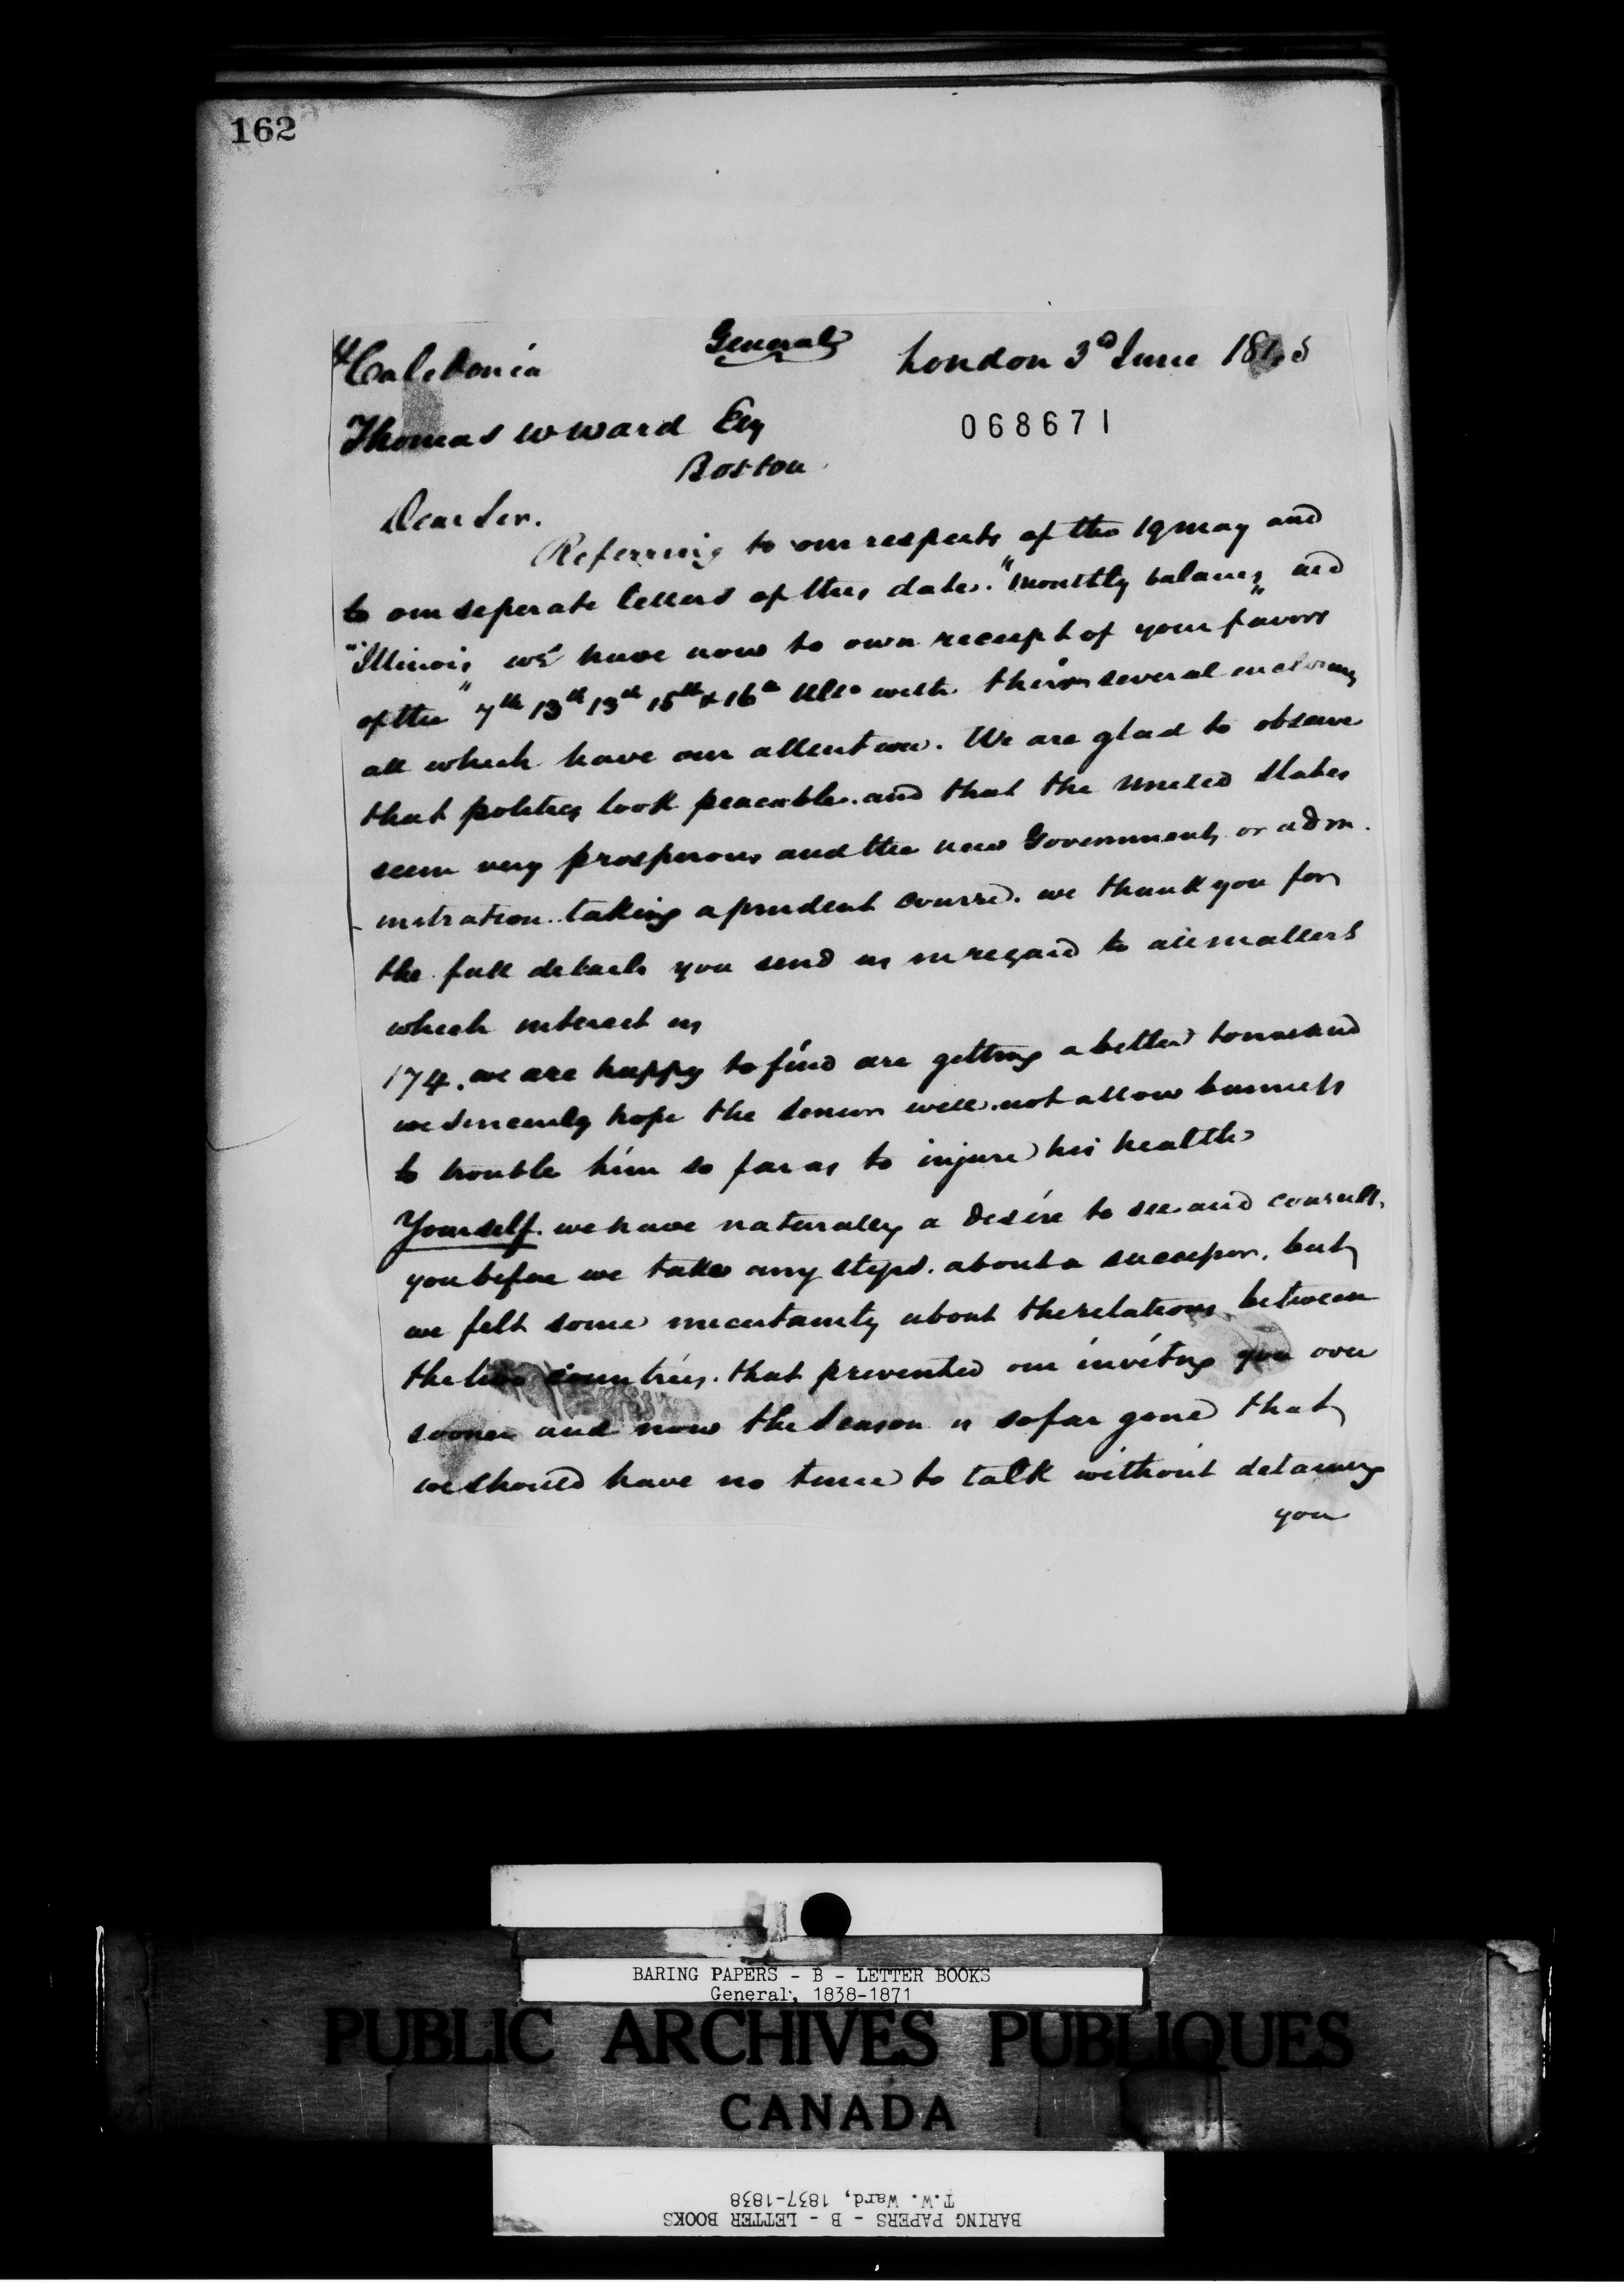 162
General
London 3d June 1845
Caledonia
068671
Thomas W Ward Esq
Boston
Dear Sir.
Referring to our respects of the 19 may and
to our seperate letters of this date. "monthly balances" and
"Illinois" we have now to own receipt of your favors
of the 7th 13th 13th 15th & 16th Ulto with their several enclosures
all which have our attention. We are glad to observe
that politics look peaceable. and that the United States
seem very prosperous and the new Government, or admi
nistration. taking a prudent course. we thank you for
the full details you send us in regard to all matters
which interest us
174. we are happy to find are getting a better tone and
we sincerely hope the senior will not allow business
to trouble him so far as to injure his health
Yourself. we have naturally a desire to see and consult
you before we take any steps. about a successor. but
we felt some uncertainty about the relations between
the two countries. that prevented our inviting you over
sooner and now the season is so far gone that
we should have no time to talk without detaining
you
BARING PAPERS - B - LETTER BOOKS
General, 1838-1871
PUBLIC ARCHIVES PUBLIQUES
CANADA
T.W. Ward, 1837-1838
BARING PAPERS - B - LETTER BOOKS